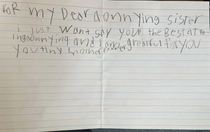 FOR my Dear annnying sister
i just want say your the BestAt
ingannnying and i am greatful for you
you tiny